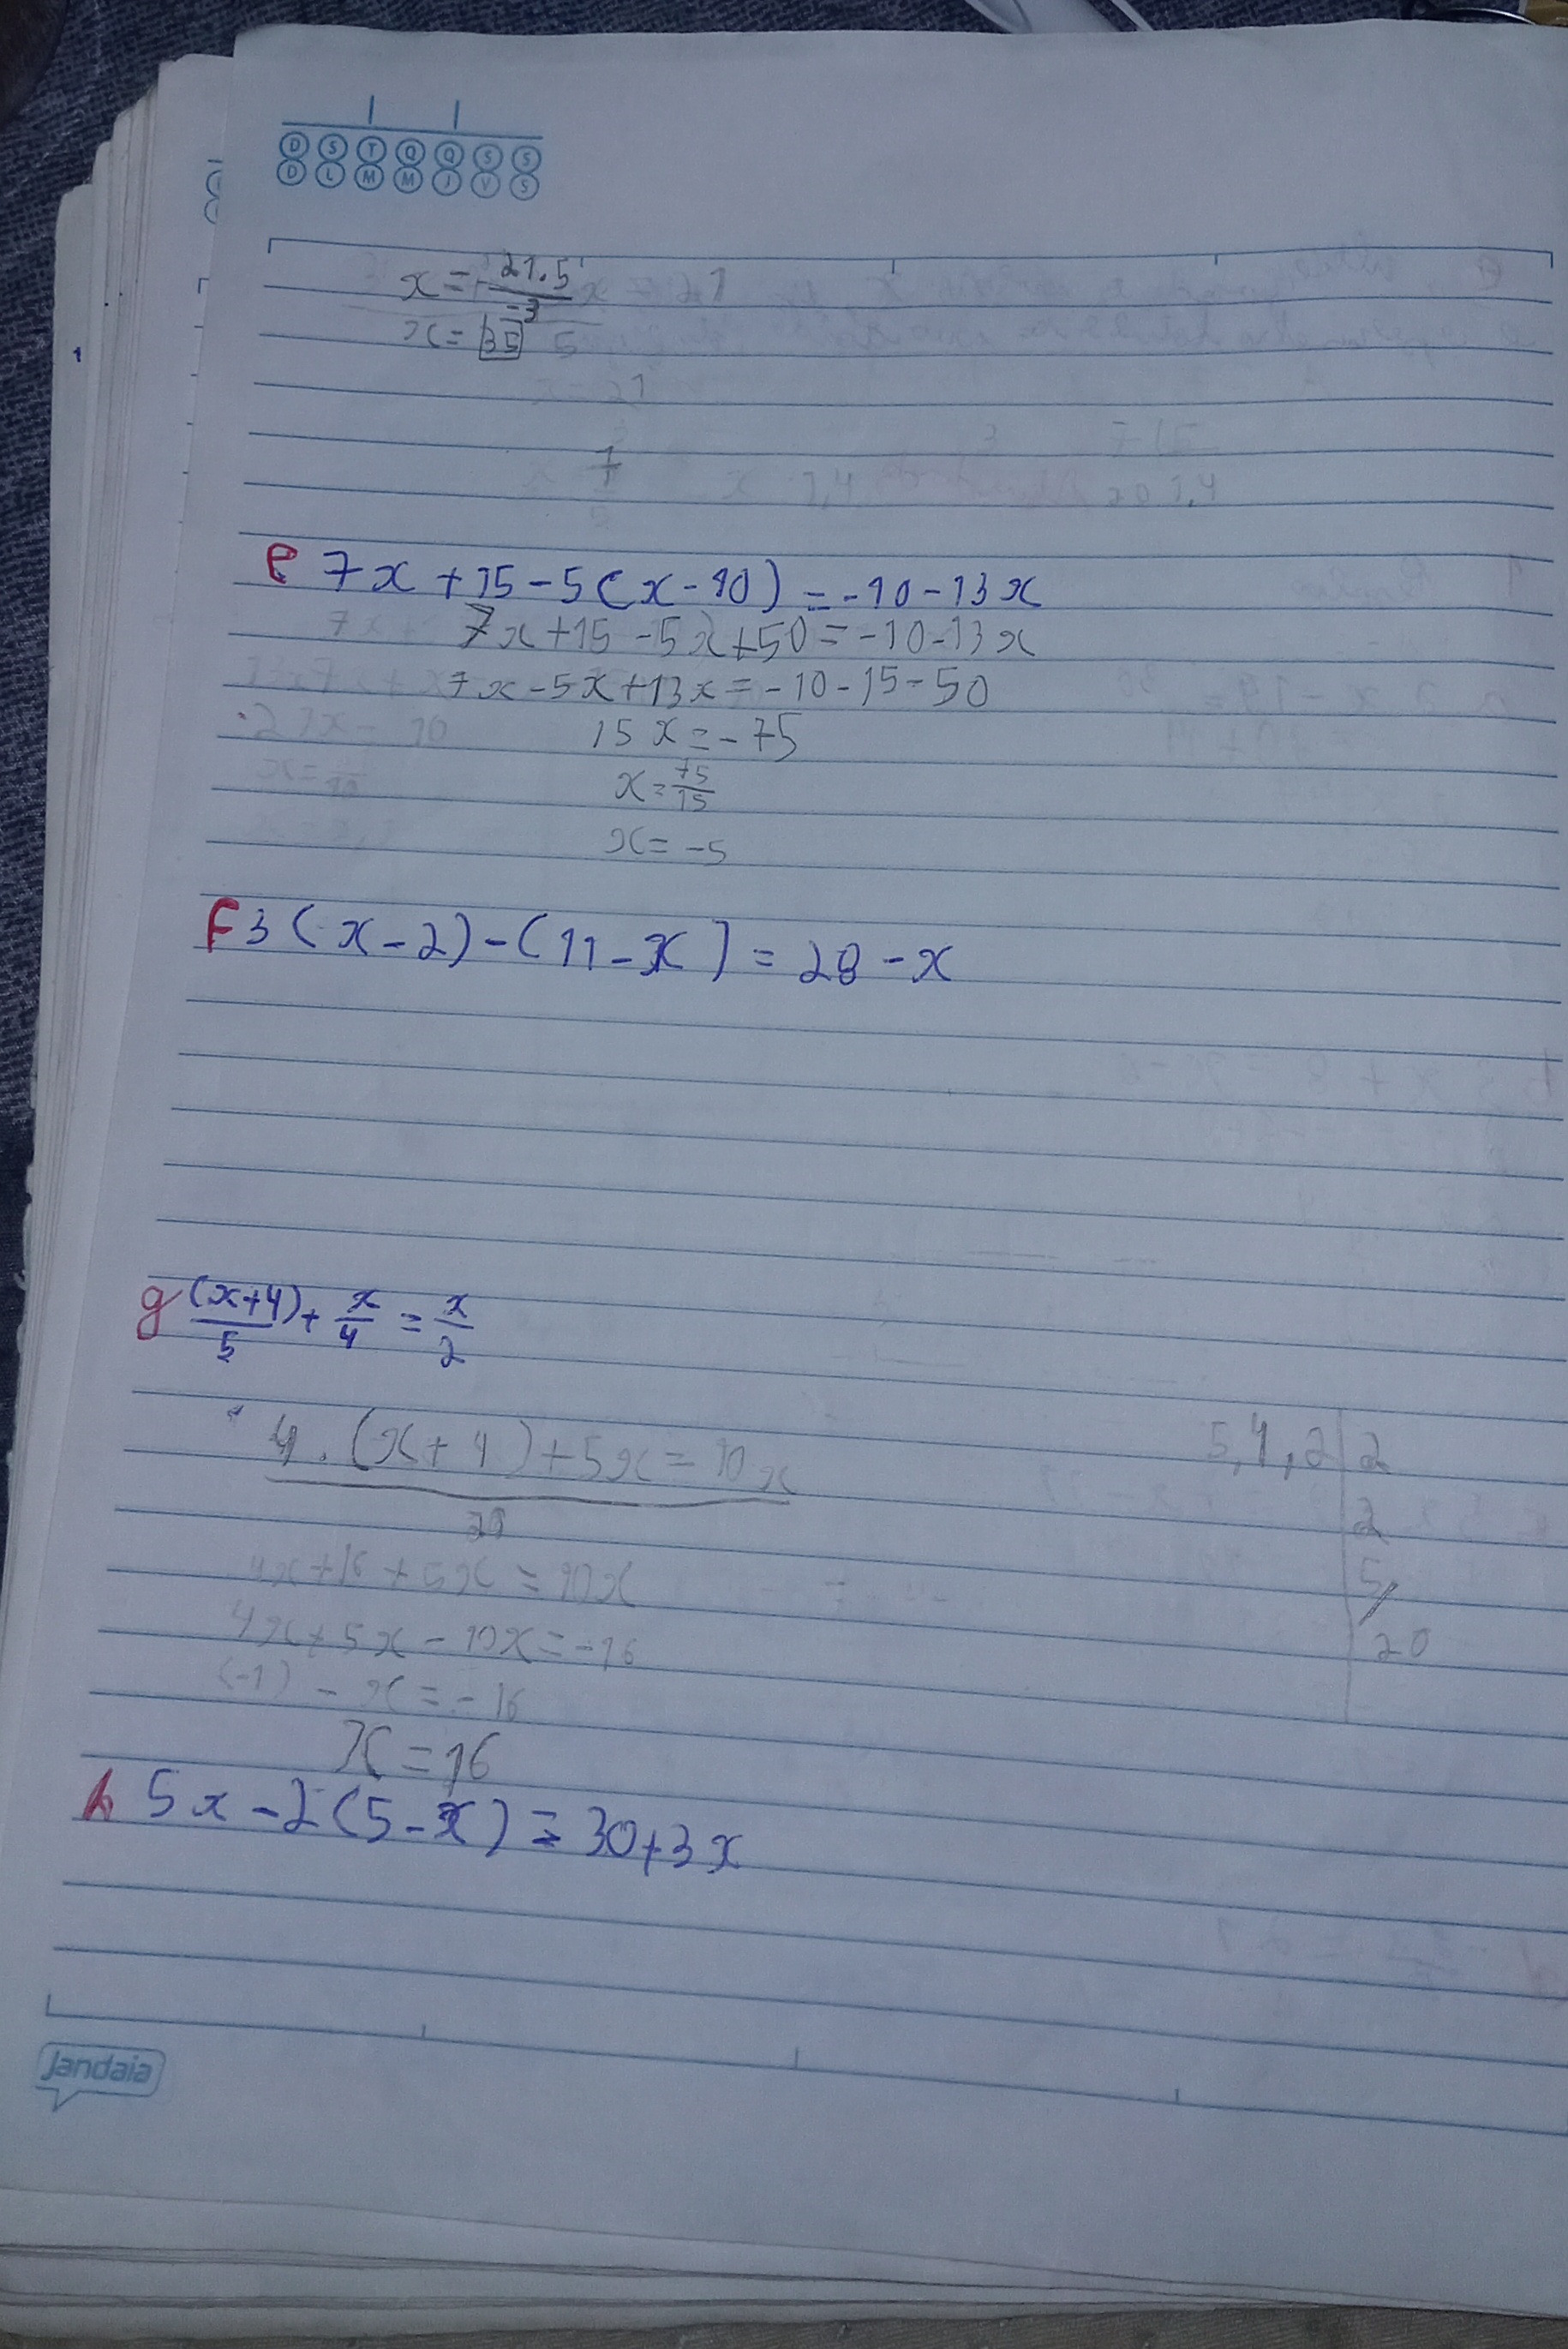 D S T Q Q S S
D L M M J V S
x = 21.5
-3
x = 35
1
e 7x + 15 - 5(x - 10) = -10 - 13x
7x + 15 - 5x + 50 = -10 - 13x
7x - 5x + 13x = -10 - 15 - 50
15x = -75
x = 75/15
x = -5
F 3(x - 2) - (11 - x) = 28 - x
g (x+4)/5 + x/4 = x/2
4.(x + 4) + 5x = 10x
5,4,2 | 2
2
4x + 16 + 5x = 10x
5
4x + 5x - 10x = -16
20
(-1) - x = -16
x = 16
h 5x - 2(5 - x) = 30 + 3x
Jandaia